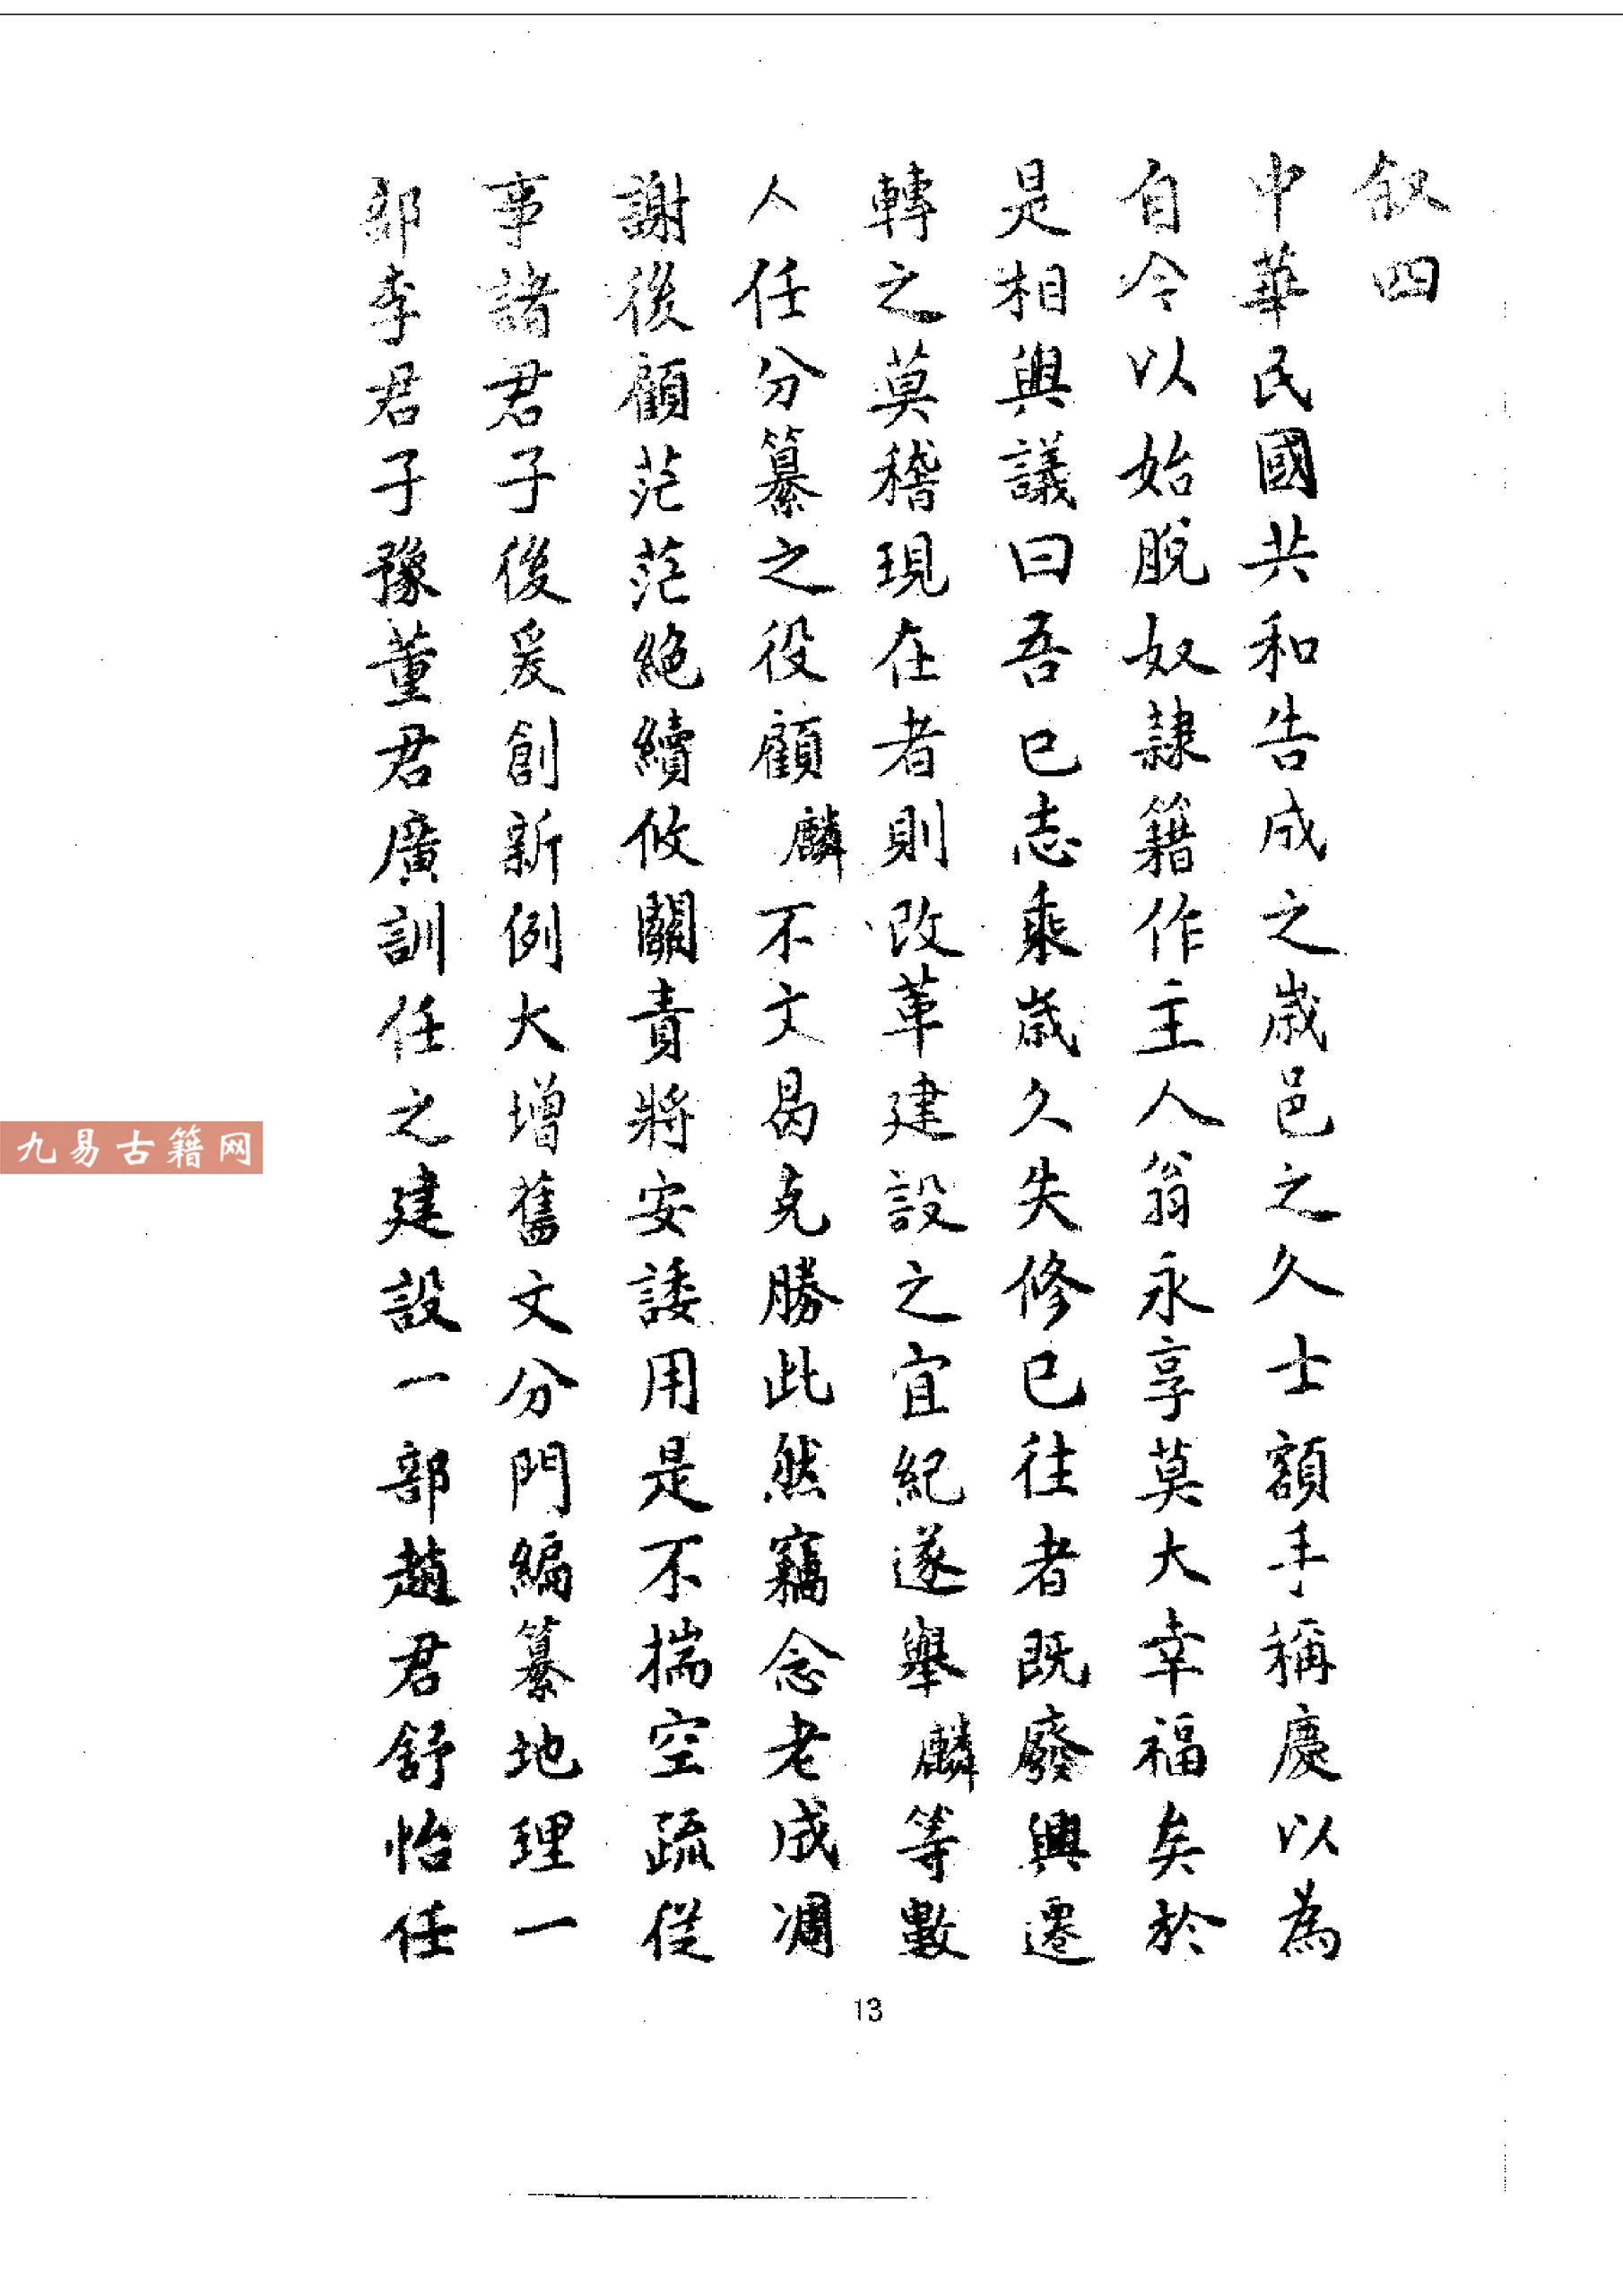 敘四
中華民國共和告成之歲邑之久士額手稱慶以為
自今以始脫奴隸籍作主人翁永享莫大幸福矣於
是相與議曰吾已志乘歲久失修已往者既廢興遷
轉之莫稽現在者則改革建設之宜紀遂舉麟等數
人任分纂之役顧麟不文曷克勝此然竊念老成凋
謝後顧茫茫絕續攸關責將安諉用是不揣空疏從
事諸君子後爰創新例大增舊文分門編纂地理一
部李君子豫董君廣訓任之建設一部趙君舒怡任
13
九易古籍网